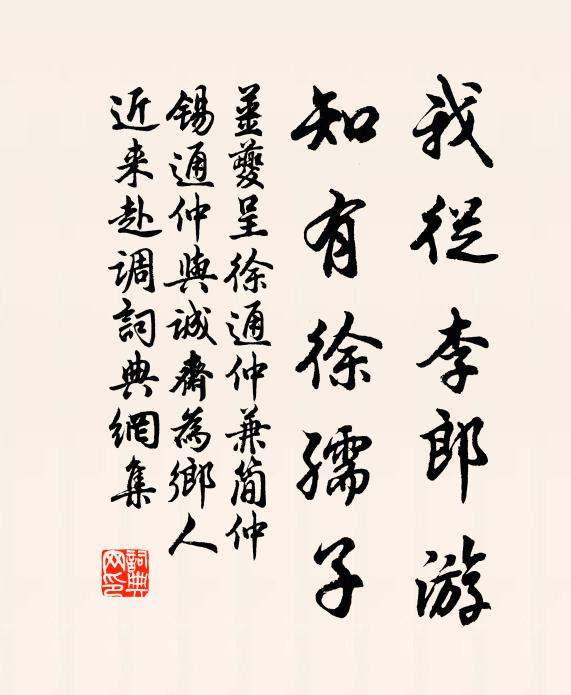 我從李郎游
知有徐孺子
姜夔呈徐通仲兼简仲
锡通仲與诚齋為鄉人
近来赴调詞典網集
詞典
网印